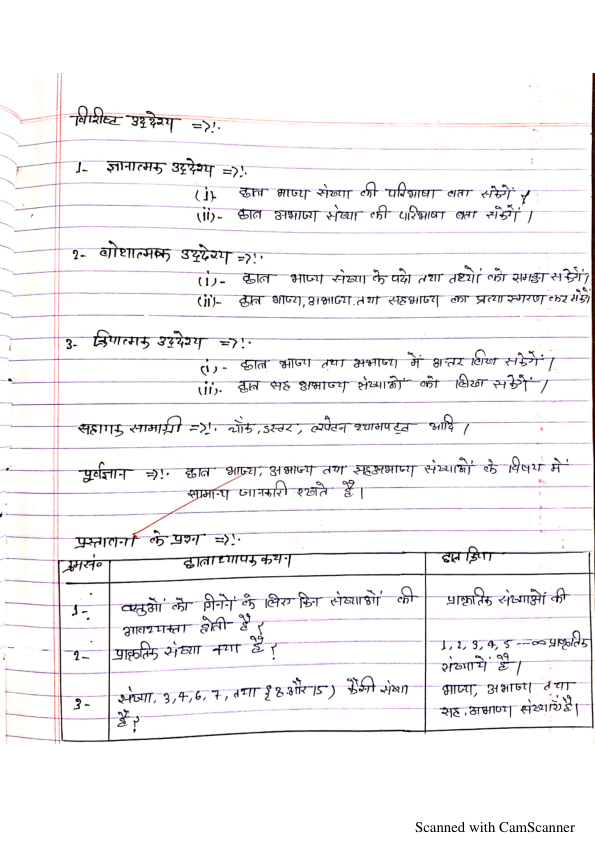 विशिष्ट उद्देश्य =>!.
1- ज्ञानात्मक उद्देश्य =>!.
(i)- छात्र भाज्य संख्या की परिभाषा बता सकेगें ।
(ii)- छात्र अभाज्य संख्या की परिभाषा बता सकेगें ।
2- बोधात्मक उद्देश्य =>!.
(i)- छात्र भाज्य संख्या के पदो तथा तथ्यों को समझ सकेगें ।
(ii)- छात्र भाज्य, अभाज्य तथा सहभाज्य का प्रत्यास्मरण कर सकेगें
3- क्रियात्मक उद्देश्य =>!.
(i)- छात्र भाज्य तथा अभाज्य में अन्तर लिख सकेगें ।
(ii)- छात्र सह अभाज्य संख्याओं को लिख सकेगें ।
सहायक सामाग्री =>!. चॉक, डस्टर, लपेटन श्यामपट्ट आदि ।
पूर्वज्ञान =>!. छात्र भाज्य, अभाज्य तथा सहअभाज्य संख्याओं के विषय में
सामान्य जानकारी रखते हैं ।
प्रस्तावना के प्रश्न =>!.
क्रमसं० छात्राध्यापक कथन छात्र क्रिया
1- वस्तुओं को गिनने के लिए किन संख्याओं की प्राकृतिक संख्याओं की
आवश्यक्ता होती है ?
2- प्राकृतिक संख्या क्या है ? 1, 2, 3, 4, 5 ---∞ प्राकृतिक
संख्यायें हैं ।
3- संख्या, 3, 4, 6, 7, तथा (8 और 15) कैसी संख्या भाज्य, अभाज्य तथा
हैं ? सह, अभाज्य संख्यायें हैं ।
Scanned with CamScanner